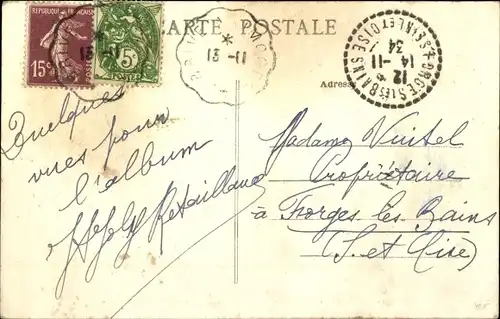 REPUBLIQUE FRANÇAISE
15c
5c
POSTES
CARTE POSTALE
* 11-11
13
* 11-11
13
FORGES LES BAINS
SEINE ET OISE
12
14-11
34
Adresse
Quelques
vues pour
l'album
Retailleau
Madame Vuitel
Propriétaire
à Forges les Bains
(S. et Oise)